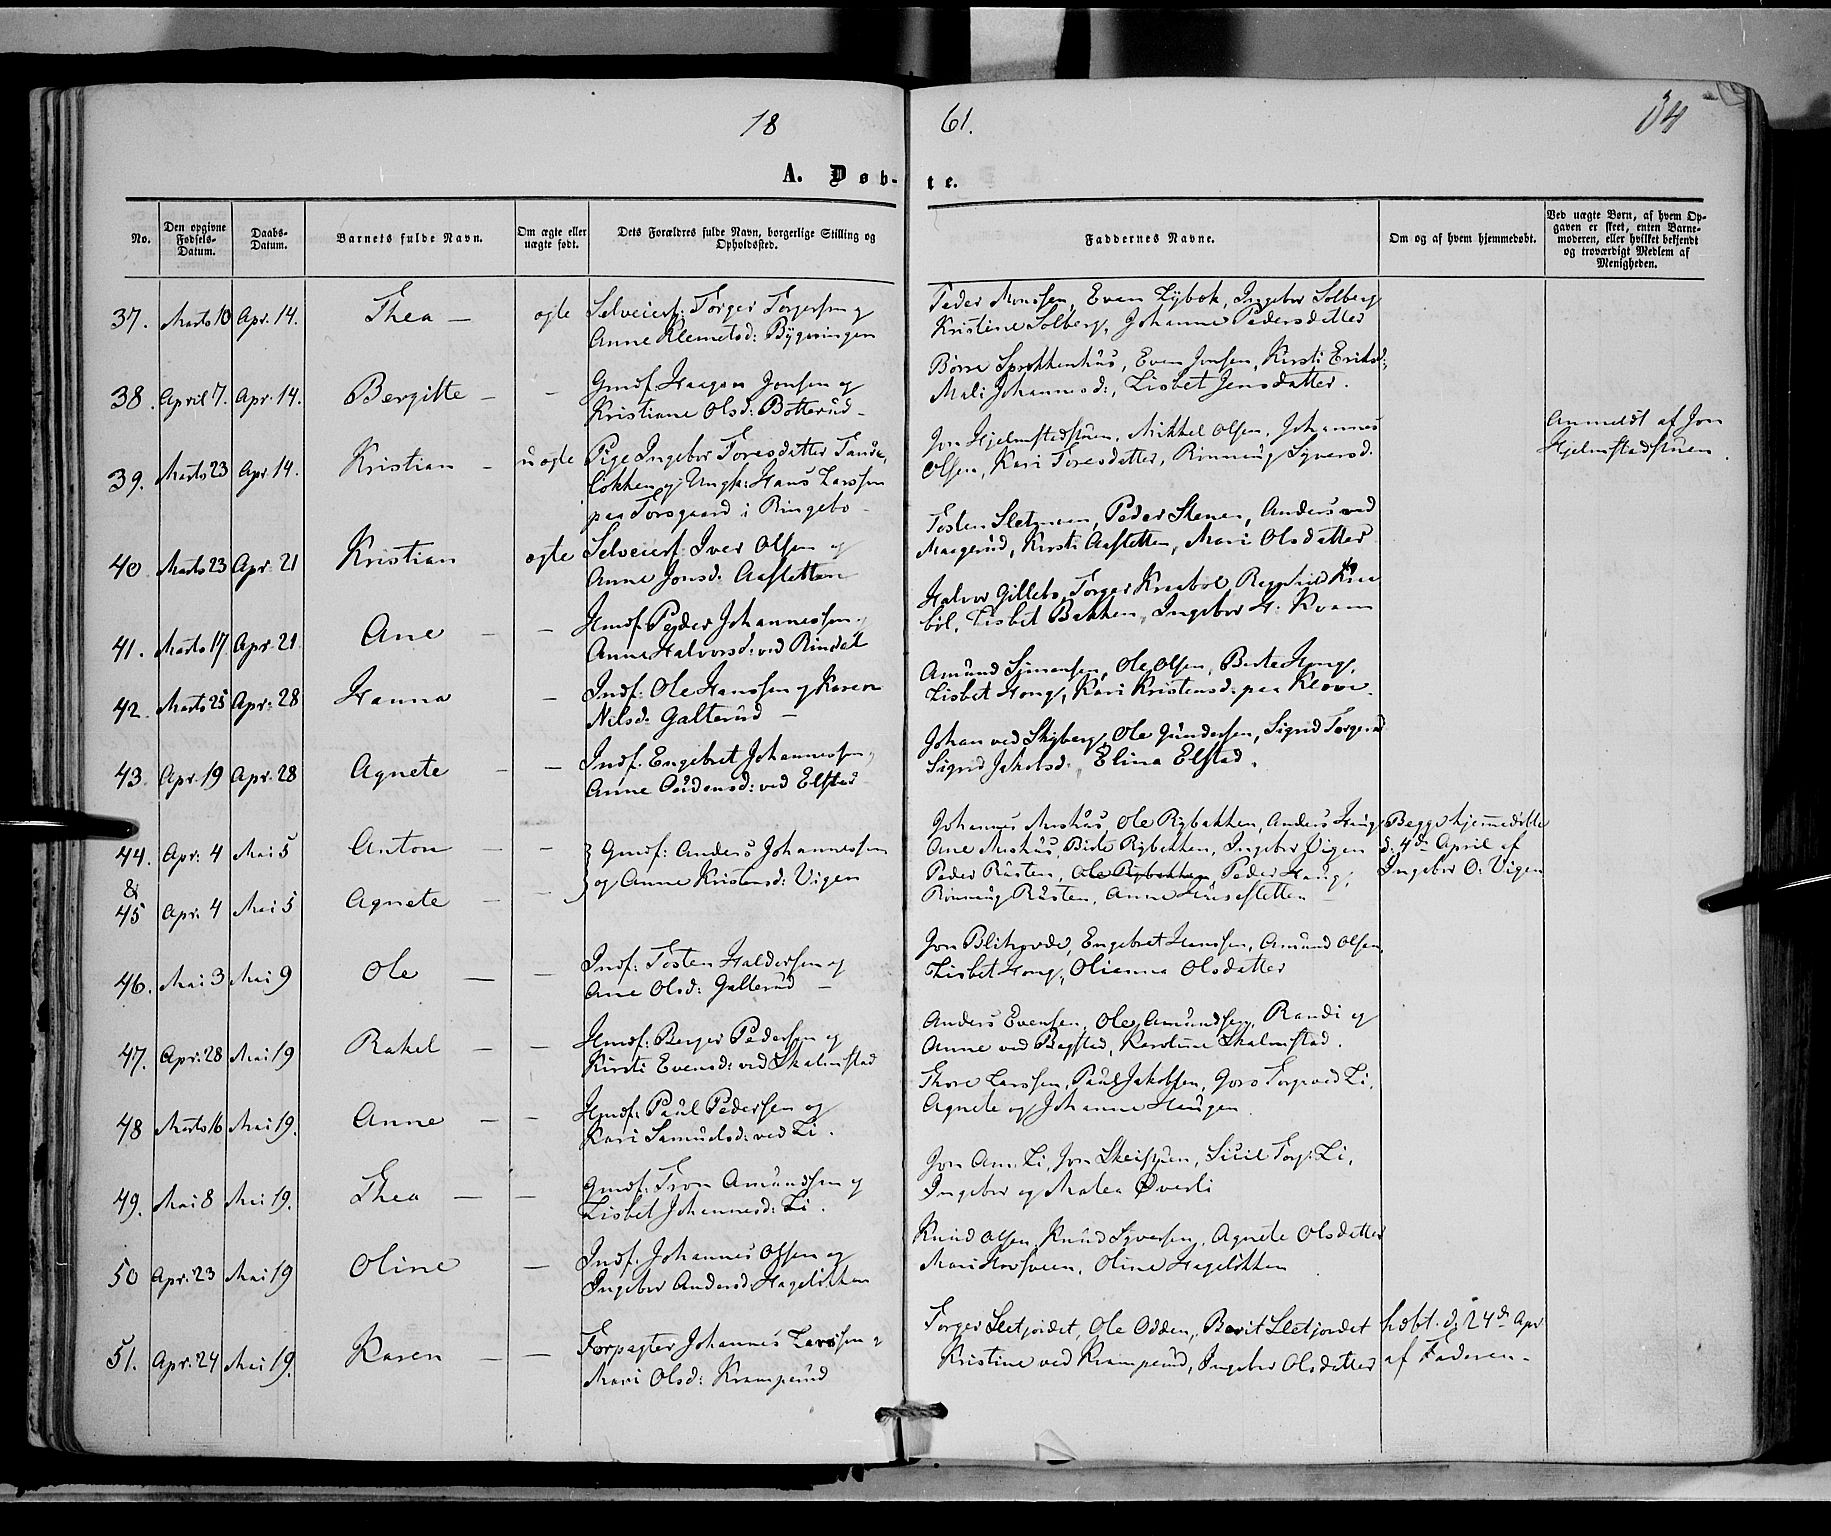 18 61. 34
A. Døb- te.
No. Den opgivne Fødsels-Datum. Daabs-Datum. Barnets fulde Navn. Om ægte eller uægte født. Dets Forældres fulde Navn, borgerlige Stilling og Opholdssted. Faddernes Navne. Om og af hvem hjemmedøbt. Ved uægte Børn, af hvem Opgaven er skeet, enten Barnemoderen, eller hvilket bekjendt og troværdigt Medlem af Menigheden.
37. Marts 10 Apr. 14. Thea — ægte Selveierf: Torger Torgersen og
Anne Klemetsd:
Peder Monssen, Even Lybek, Ingebor Solberg
Kristine Solberg, Johanne Pedersdatter
38. April 7. Apr. 14. Bergitte — — Gmdf. Haagen Jonsen og
Kristiane Olsd: Botterud —
Børre Sprekkenhus, Even Jonsen, Kirsti Eriksd:
Mali Johannesd:, Lisbet Jensdatter.
39. Marts 23 Apr. 14. Kristian — uægte Pige Ingebor Toresdatter
Løkken og Ungk: Hans Larssen
paa Forsgaard i Ringebo —
Jon Hjelmstadstuen, Mikkel Olsen, Johannes
Olsen, Kari Toresdatter, Rønnaug Syversd.
Anmeldt af Jon
Hjelmstadstuen.
40. Marts 23 Apr. 21 Kristian ægte Selveierf: Iver Olsen og
Anne Jonsd: Aasletten
Tosten Sletmoen, Peder Stenen, Anders ved
Maagerud, Kirsti Aasletten, Mari Olsdatter
41. Marts 17 Apr. 21 Ane — — Hmdf. Peder Johannessen og
Anne Halvorsd: ved Rindal
Halvor Gillebo, Torger Kraabøl, Ragnhild Kraa
bøl, Lisbet Bakken, Ingebor H. Kvam
42. Marts 25 Apr: 28 Hanna — Indf: Ole Hanssen og Karen
Nilsd: Galterud —
Amund Simensen, Ole Olsen, Berte Hong,
Lisbet Hong, Kari Kristensd: paa Klove.
43. Apr. 19 Apr. 28 Agnete — — Indf. Engebret Johannessen og
Anne Audensd: ved Elstad
Johan ved Skyberg, Ole Gundersen, Sigrid Torgersd
Sigrid Jakobsd:, Elina Elstad.
44. Apr: 4 Mai 5 Anton — — } Gmdf: Anders Johannessen
og Anne Kristensd: Vigen
Johannes Aushus, Ole Rybakken, Anders Haug,
Ane Aushus, Birte Rybakken, Ingebor Vigen
Begge hjemmedøbte
d: 4de April af
Ingebor O. Vigen
&
45 Apr: 4 Mai 5 Agnete — —
Peder Rusten, Ole Rybakken Peder Haug,
Rønnaug Rusten, Anne Husesletten —
46. Mai 3 Mai 9 Ole — — Indf: Tosten Haldorsen og
Ane Olsd: Galterud —
Jon Blikrøde, Engebret Hanssen, Amund Olsen,
Lisbet Hong, Olianna Olsdatter
47. Apr: 28 Mai 19 Rakel — — Hmdf: Berger Pedersen og
Kirsti Evensd: ved Skalmstad
Anders Evensen, Ole Amundsen, Randi og
Anne ved Bøgstad, Karoline Skalmstad.
48 Marts 16 Mai 19. Anne — — Hmdf: Paul Pedersen og
Kari Samuelsd: ved Li.
Thore Larssen, Paul Jakobsen, Gors Torp ved Li,
Agnete og Johanne Haugen.
49. Mai 8 Mai 19. Thea — — Gmdf: Tron Amundsen og
Lisbet Johannesd: Li.
Jon Am. Li, Jon Skeistuen, Sicil Torp: Li,
Ingebor og Malea Øverli
50 Apr: 23 Mai 19 Oline — Indf: Johannes Olsen og
Ingebor Andersd: Hageløkken
Knud Olsen, Knud Syversen, Agnete Olsdatter
Mari Horsveen, Oline Hageløkken
51. Apr: 24 Mai 19. Karen — — Forpagter Johannes Larssen og
Mari Olsd: Krampenud
Torger Sletjordet, Ole Odden, Berit Sletjordet
Kristine ved Krampenud, Ingebor Olsdatter
hdbt. d: 24de Apr
af Faderen —